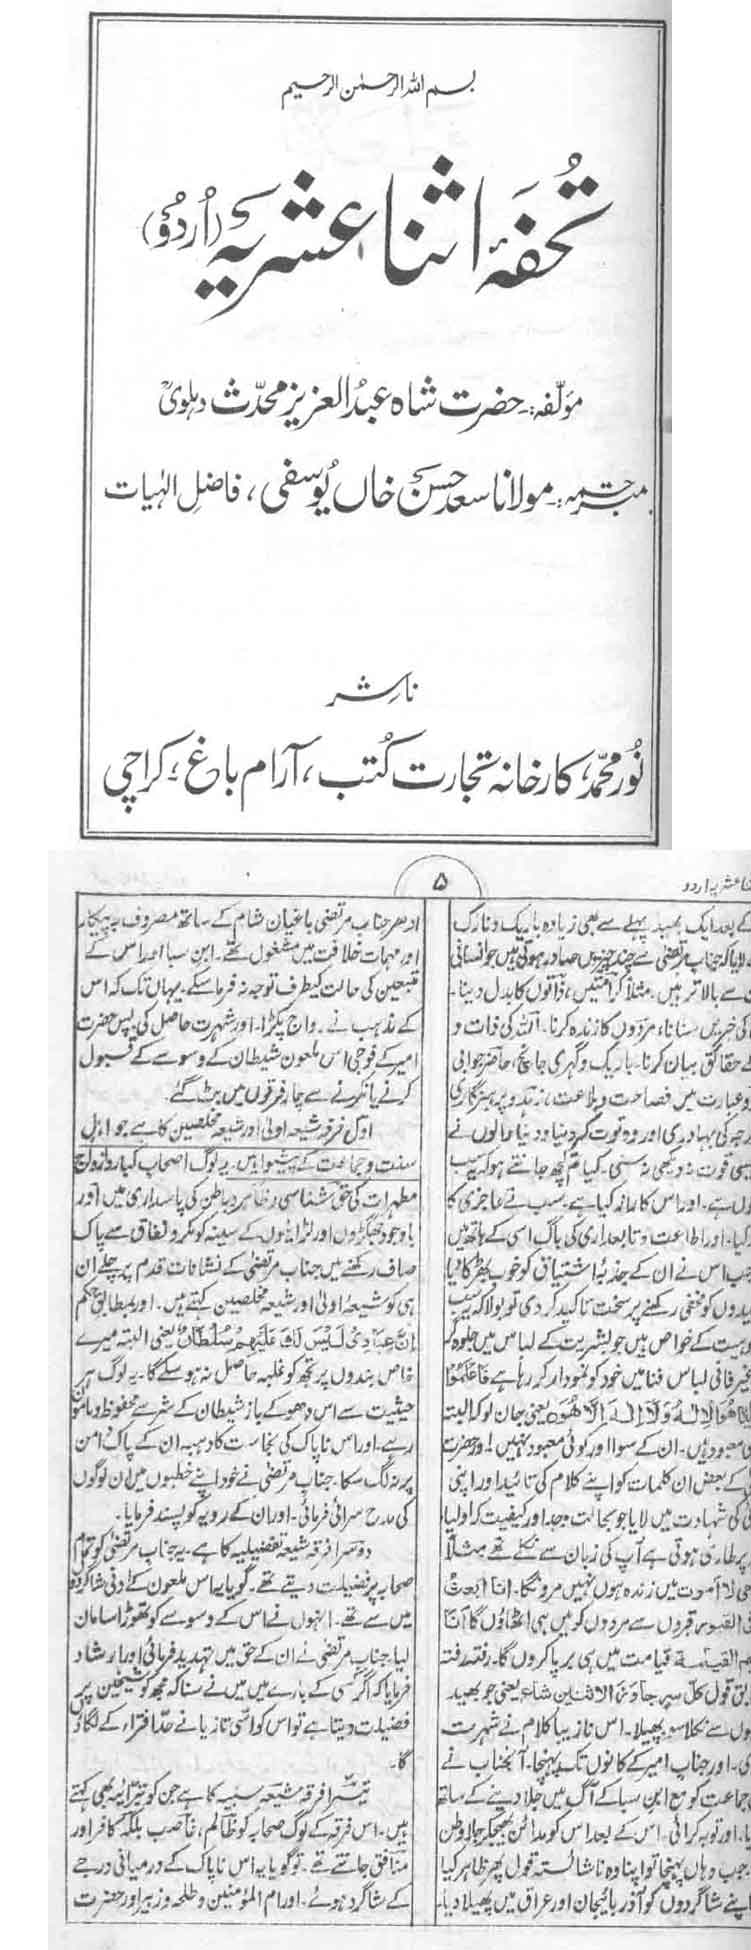 بسم اللہ الرحمٰن الرحیم
تحفۂ اثنا عشریہ (اُردُو)
مؤلفہ:۔ حضرت شاہ عبدُ العزیز محدّث دہلویؒ
مترجمہ:۔ مولانا سعد حسن خاں یُوسفی، فاضلِ الہٰیات
ناشر
نُور محمّد، کارخانہ تجارت کُتب، آرام باغ، کراچی
۵
عشریہ اردو
کے بعد ایک بھید پہلے سے بھی زیادہ باریک و نازک
لایا کہ جناب مرتضیٰ سے چند چیزیں صادر ہوتی ہیں جو انسانی
سے بالا تر ہیں۔ مثلاً کرامتیں، ذاتوں کا بدل دینا۔
کی خبریں سنانا، مردوں کا زندہ کرنا۔ اللہ کی ذات و
حقائق بیان کرنا۔ باریک و گہری جانچ، حاضر جوابی
و عبارت میں فصاحت و بلاغت، زہد و پرہیزگاری
کی بہادری اور وہ قوت کہ دنیا و دنیا والوں نے
قوت نہ دیکھی نہ سنی۔ کیا تم کچھ جانتے ہو کہ یہ سب
ہے۔ اور اس کا راز کیا ہے۔ سب نے عاجزی کا
کیا۔ اور اطاعت و تابعداری کی باگ اسی کے ہاتھ میں
جب اس نے ان کے جذبۂ اشتیاق کو خوب بھڑکا دیا
کو مخفی رکھنے پر سخت تاکید کر دی تو بولا کہ یہ سب
کے خواص ہیں جو بشریت کے لباس میں جلوہ گر
غیر فانی لباس فنا میں خود کو نمودار کر رہا ہے فاعلموا
ھو الالٰہ ولا الٰہ الا ھو یعنی جان لو کہ البتہ
معبود ہیں۔ ان کے سوا اور کوئی معبود نہیں! اور حضرت
کے بعض ان کلمات کو اپنے کلام کی تائید اور اپنی
کی شہادت میں لایا جو بحالت وجد اور کیفیت کہ اولیا
پر طاری ہوتی ہے آپ کی زبان سے نکلے تھے مثلاً
لا اموت میں زندہ ہوں نہیں مرونگا۔ انا ابعث
القبور قبروں سے مردوں کو میں ہی اٹھاؤں گا انا
القیمۃ قیامت میں ہی برپا کروں گا۔ رفتہ رفتہ
قول کل سر جاوز الاثنین شاع یعنی جو بھید
سے نکلا سو پھیلا۔ اس نازیبا کلام نے شہرت
۔ اور جناب امیر کے کانوں تک پہنچا۔ آنجناب نے
جماعت کو مع ابن سبا کے آگ میں جلا دینے کے ساتھ
۔ اور توبہ کرائی۔ اس کے بعد اس کو مدائن بھیجکر جلا وطن
جب وہاں پہنچا تو اپنا وہ ناشائستہ قول پھر ظاہر کیا
اپنے شاگردوں کو آذر بائیجان اور عراق میں پھیلا دیا۔
ادھر جناب مرتضیٰ باغیان شام کے ساتھ مصروف بہ پیکار
اور مہمات خلافت میں مشغول تھے۔ ابن سبا اور اس کے
متبعین کی حالت کیطرف توجہ نہ فرما سکے۔ یہاں تک کہ اس
کے مذہب نے رواج پکڑا۔ اور شہرت حاصل کی پس حضرت
امیر کے فوجی اس ملعون شیطان کے وسوسے کے قبول
کرنے یا نہ کرنے سے چار فرقوں میں بٹ گئے۔
اول فرقہ شیعہ اولیٰ اور شیعہ مخلصین کا ہے جو اہل
سنت و جماعت کے پیشوا ہیں۔ یہ لوگ اصحاب کبار و ازواج
مطہرات کی حق شناسی و ظاہر و باطن کی پاسداری میں اور
باوجود جھگڑوں اور لڑائیوں کے سینہ کو مکر و نفاق سے پاک
صاف رکھنے میں جناب مرتضیٰ کے نشانات قدم پر چلے ان
ہی کو شیعہ اولیٰ اور شیعہ مخلصین کہتے ہیں۔ اور بمطابق حکم
اِنَّ عِبَادِیْ لَیْسَ لَكَ عَلَیْهِمْ سُلْطَانٌ یعنی البتہ میرے
خاص بندوں پر تجھ کو غلبہ حاصل نہ ہو سکے گا۔ یہ لوگ ہر
حیثیت سے اس دھوکے باز شیطان کے شر سے محفوظ و مامون
رہے۔ اور اس ناپاک کی نجاست کا دھبہ ان کے پاک دامن
پر نہ لگ سکا۔ جناب مرتضیٰ نے خود اپنے خطبوں میں ان لوگوں
کی مدح سرائی فرمائی۔ اور ان کے رویہ کو پسند فرمایا۔
دوسرا فرقہ شیعہ تفضیلیہ کا ہے۔ یہ جناب مرتضیٰ کو تمام
صحابہ پر فضیلت دیتے تھے۔ گویا یہ اس ملعون کے ادنیٰ شاگردوں
میں سے تھے۔ انہوں نے اس کے وسوسے کو تھوڑا سا مان
لیا۔ جناب مرتضیٰ نے ان کے حق میں تہدید فرمائی اور ارشاد
فرمایا کہ اگر کسی کے بارے میں میں نے سنا کہ مجھ کو شیخین پر
فضیلت دیتا ہے تو اس کو اسّی تازیانے حد افتراء کے لگاؤں
گا۔
تیسرا فرقہ شیعہ سبیہ کا ہے جن کو تبرائیہ بھی کہتے
ہیں۔ اس فرقہ کے لوگ صحابہ کو ظالم، غاصب بلکہ کافر اور
منافق جانتے تھے۔ تو گویا یہ اس ناپاک کے درمیانی درجے
کے شاگرد ہوئے۔ اور ام المؤمنین و طلحہ و زبیر اور حضرت